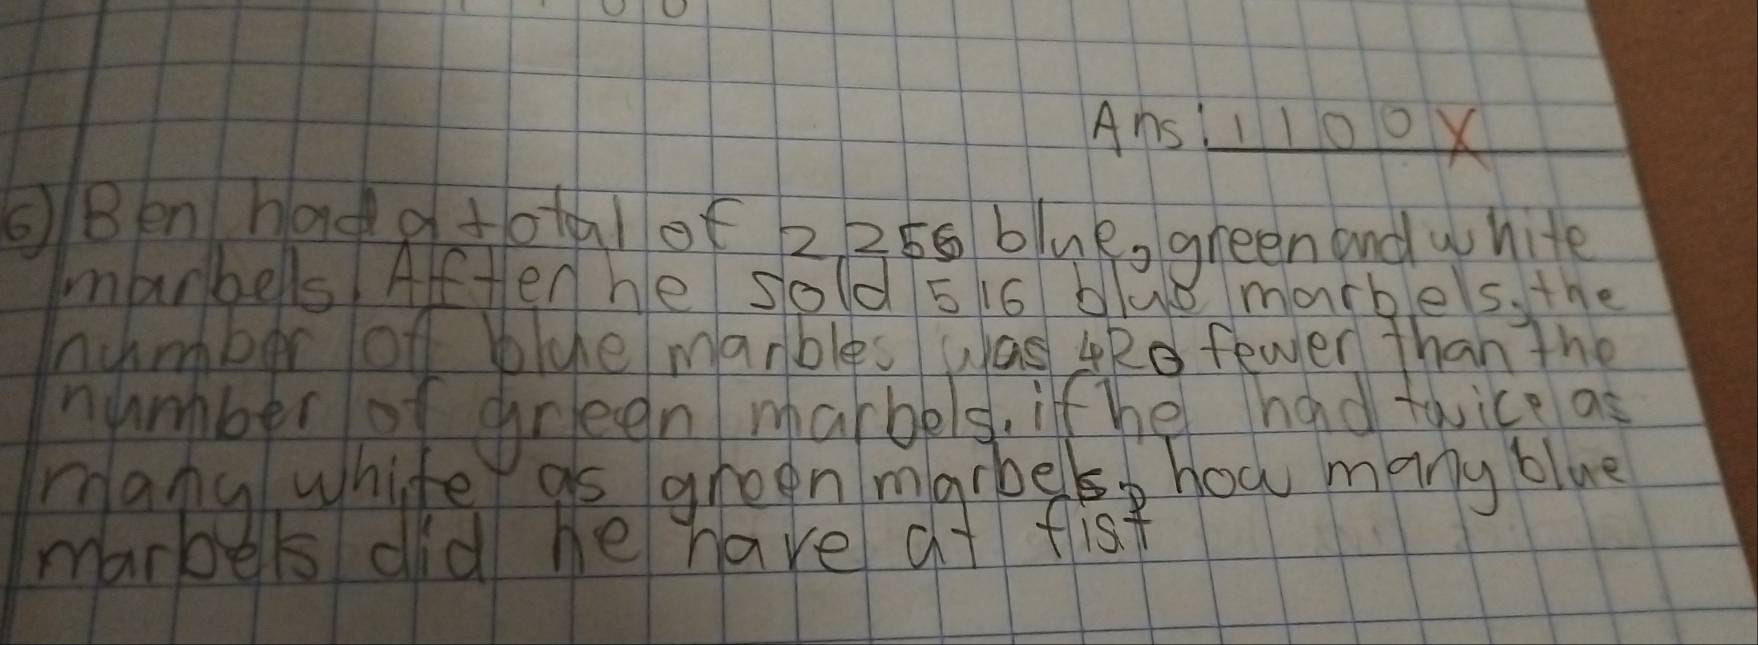 Ans: 1100 X
6) Ben had a total of 2,256 blue, green and white
marbels. After he sold 516 blue marbels, the
number of blue marbles was 420 fewer than the
number of green marbels. if he had twice as
many white as green marbels, how many blue
marbels did he have at fist